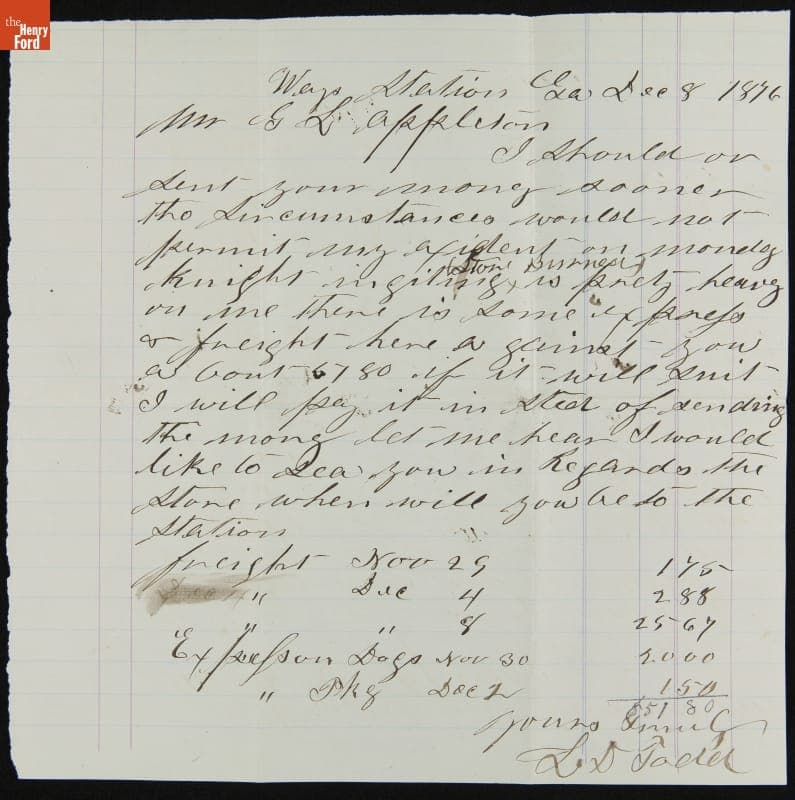 the
Henry
Ford
Ways Station Ga Dec 8 1876
Mr G L Appleton
I should ov
sent your mony sooner
the Sircumstances would not
permit my axident on monday
(Store Burned)
Knight is prety heavy
on me there is some express
& freight here a gainst you
a bout 6780 if it will suit
I will pay it in sted of sending
the mony let me hear I would
like to Sea you in Regards the
store when will you be to the
Station
freight Nov 29 175
" Dec 4 288
" " 8 2567
Express on Dogs Nov 30 2000
" Pkg Dec 2 150
51 80
Yours Truly
L D Todd